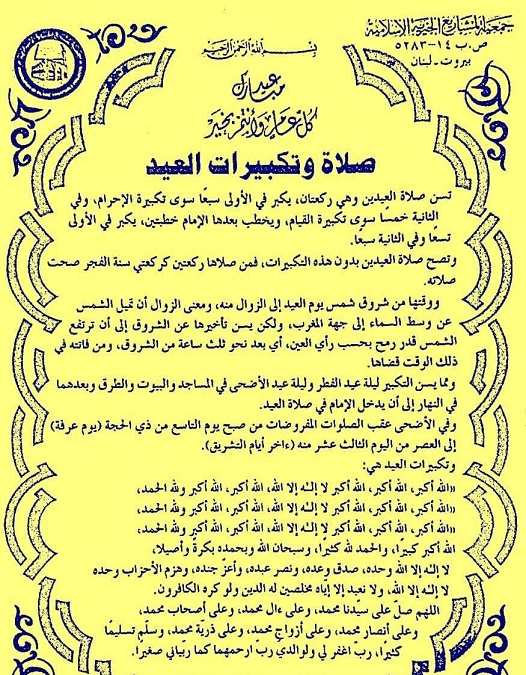 جمعية المشاريع الخيرية الإسلامية
ص.ب ١٤-٥٢٨٣
بيروت ـ لبنان
بسم الله الرحمن الرحيم
عيد مبارك
كل عام وأنتم بخير
صلاة وتكبيرات العيد
تسن صلاة العيدين وهي ركعتان، يكبر في الأولى سبعًا سوى تكبيرة الإحرام، وفي
الثانية خمسًا سوى تكبيرة القيام، ويخطب بعدها الإمام خطبتين، يكبر في الأولى
تسعًا وفي الثانية سبعًا.
وتصح صلاة العيدين بدون هذه التكبيرات، فمن صلاها ركعتين كركعتي سنة الفجر صحت
صلاته.
ووقتها من شروق شمس يوم العيد إلى الزوال منه، ومعنى الزوال أن تميل الشمس
عن وسط السماء إلى جهة المغرب، ولكن يسن تأخيرها عن الشروق إلى أن ترتفع
الشمس قدر رمح بحسب رأي العين، أي بعد نحو ثلث ساعة من الشروق، ومن فاتته في
ذلك الوقت قضاها.
ومما يسن التكبير ليلة عيد الفطر وليلة عيد الأضحى في المساجد والبيوت والطرق وبعدهما
في النهار إلى أن يدخل الإمام في صلاة العيد.
وفي الأضحى عقب الصلوات المفروضات من صبح يوم التاسع من ذي الحجة (يوم عرفة)
إلى العصر من اليوم الثالث عشر منه (ءاخر أيام التشريق).
وتكبيرات العيد هي:
«الله أكبر، الله أكبر، الله أكبر لا إلـٰه إلا الله، الله أكبر، الله أكبر ولله الحمد،
«الله أكبر، الله أكبر، الله أكبر لا إلـٰه إلا الله، الله أكبر، الله أكبر ولله الحمد،
«الله أكبر، الله أكبر، الله أكبر لا إلـٰه إلا الله، الله أكبر، الله أكبر ولله الحمد،
الله أكبر كبيرًا، والحمد لله كثيرًا، وسبحان الله وبحمده بكرة وأصيلا،
لا إلـٰه إلا الله وحده، صدق وعده، ونصر عبده، وأعزّ جنده، وهزم الأحزاب وحده
لا إلـٰه إلا الله، ولا نعبد إلا إيّاه مخلصين له الدين ولو كره الكافرون.
اللهم صلّ على سيّدنا محمد، وعلى ءال محمد، وعلى أصحاب محمد،
وعلى أنصار محمد، وعلى أزواج محمد، وعلى ذريّة محمد، وسلّم تسليمًا
كثيرًا، ربّ اغفر لي ولوالدي ربّ ارحمهما كما ربياني صغيرًا.